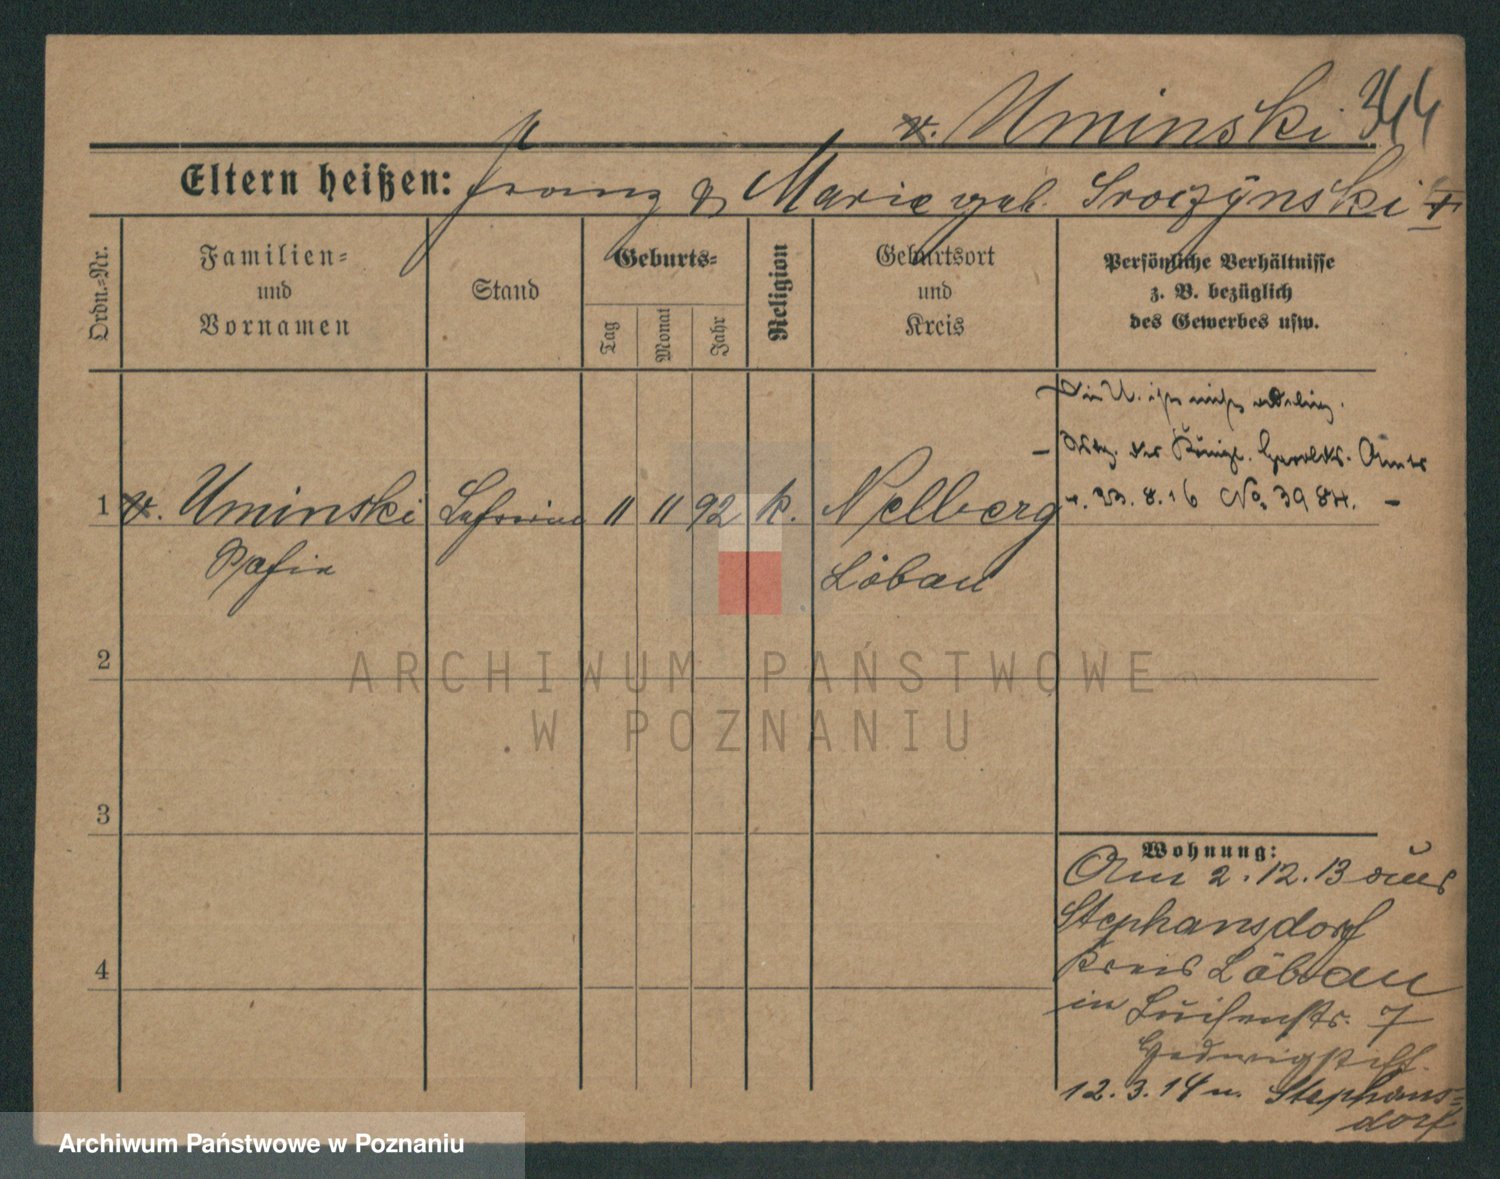 v. Uminski 344
Eltern heißen: Franz & Marie geb. Sroczynski
Ordn.-Nr.
Familien-
und
Vornamen
Stand
Geburts-
Tag
Monat
Jahr
Religion
Geburtsort
und
Kreis
Persönliche Verhältnisse
z. B. bezüglich
des Gewerbes usw.
Die U. ist nicht adelig.
des Königl. Herolds-Amts
v. 23.8.16 No. 3984. –
1 v. Uminski Lehrerin 11 11 92 k. Nelberg
Sofie Löbau
2
3
4
Wohnung:
Am 2.12.13 aus
Stephansdorf
Kreis Löbau
in Luisenstr. 7
Hedwigstift.
12.3.14 n. Stephans=
dorf
ARCHIWUM PAŃSTWOWE
W POZNANIU
Archiwum Państwowe w Poznaniu